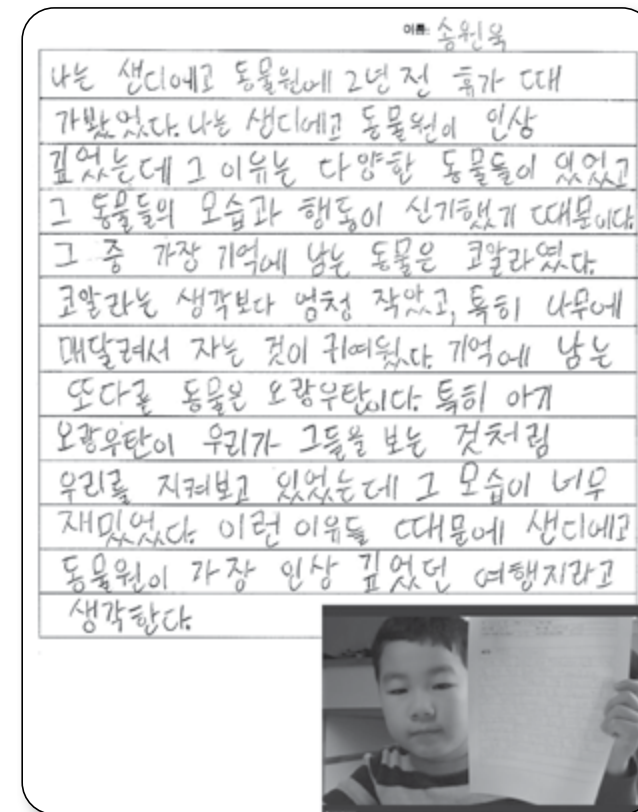 이름: 송원욱
나는 샌디에고 동물원에 2년 전 휴가 때
가봤었다. 나는 샌디에고 동물원이 인상
깊었는데 그 이유는 다양한 동물들이 있었고
그 동물들의 모습과 행동이 신기했기 때문이다.
그 중 가장 기억에 남는 동물은 코알라였다.
코알라는 생각보다 엄청 작았고, 특히 나무에
매달려서 자는 것이 귀여웠다. 기억에 남는
또다른 동물은 오랑우탄이다. 특히 아기
오랑우탄이 우리가 그들을 보는 것처럼
우리를 지켜보고 있었는데 그 모습이 너무
재밌었다. 이런 이유들 때문에 샌디에고
동물원이 가장 인상 깊었던 여행지라고
생각한다.